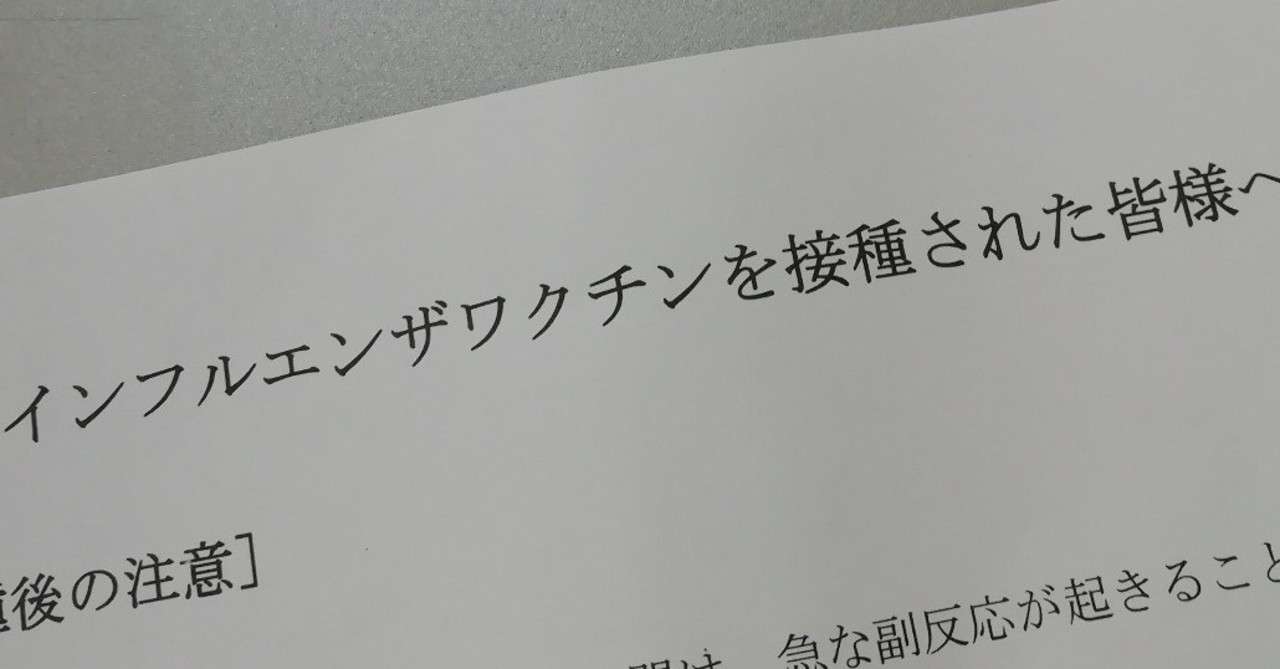 インフルエンザワクチンを接種された皆様へ
種後の注意]
間は、急な副反応が起きること